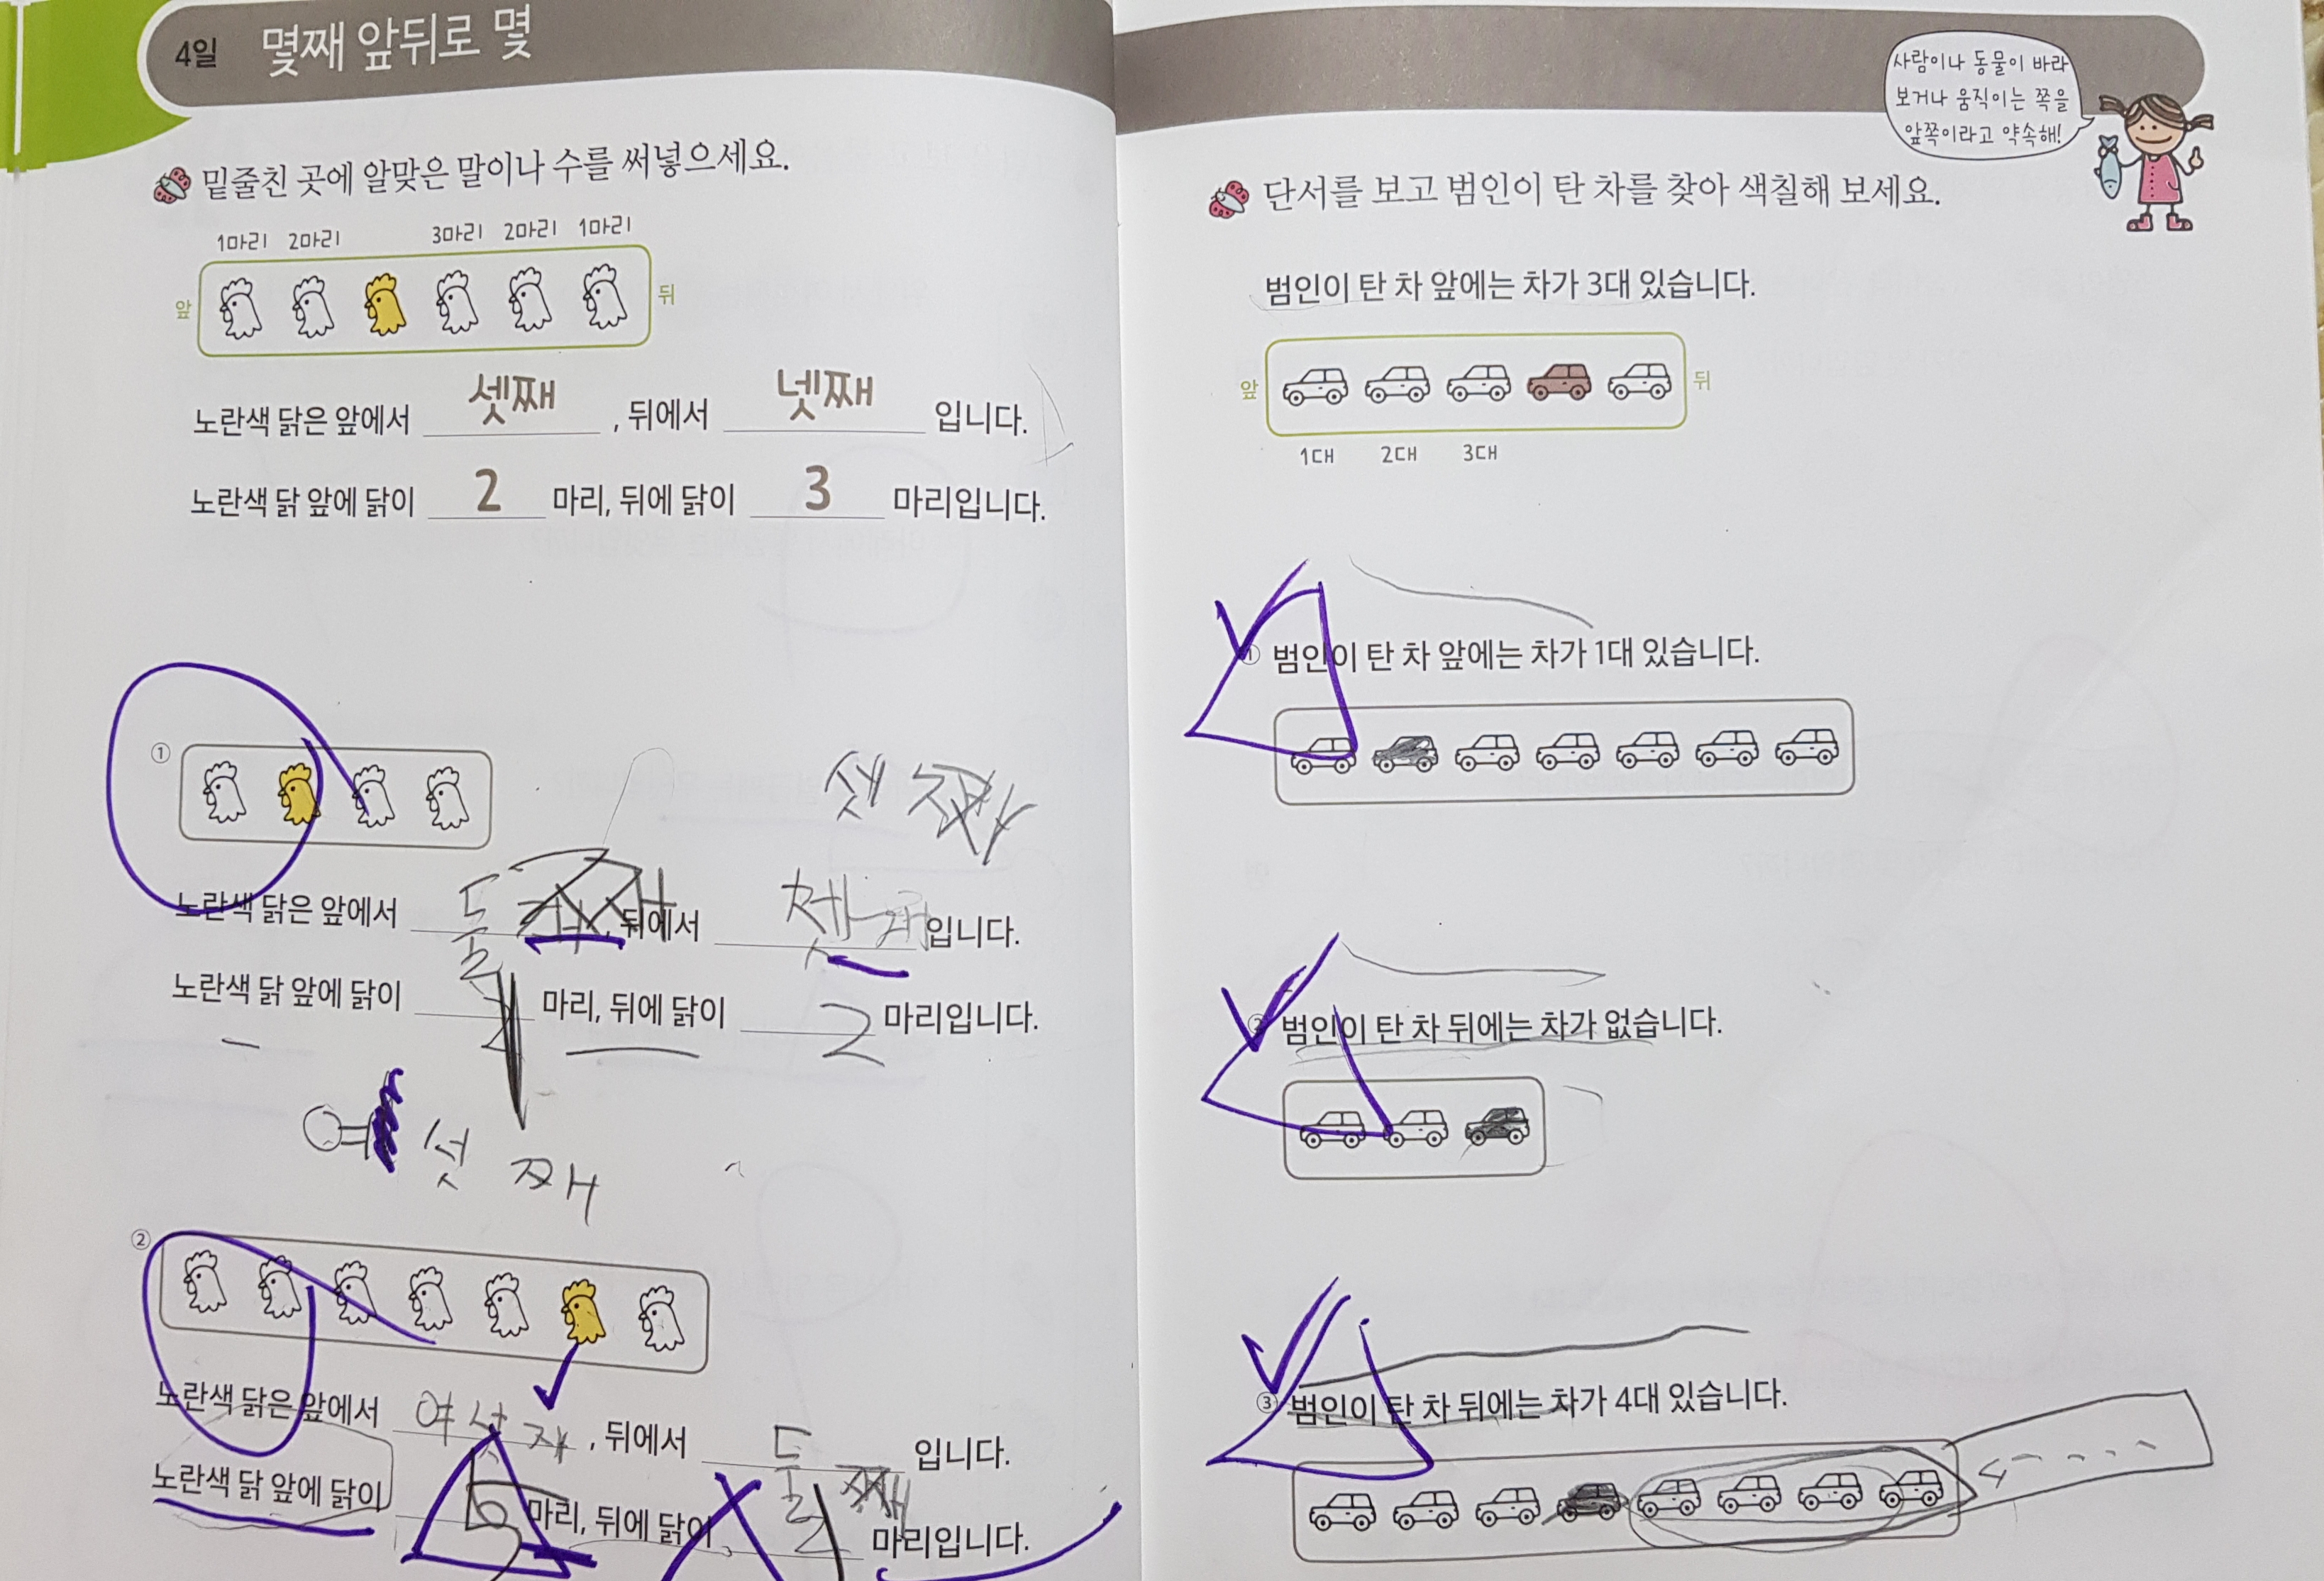 4일 몇째 앞뒤로 몇
밑줄친 곳에 알맞은 말이나 수를 써넣으세요.
1마리 2마리 3마리 2마리 1마리
앞 뒤
노란색 닭은 앞에서 셋째 , 뒤에서 넷째 입니다.
노란색 닭 앞에 닭이 2 마리, 뒤에 닭이 3 마리입니다.
①
셋
노란색 닭은 앞에서 둘 , 뒤에서 입니다.
노란색 닭 앞에 닭이 1 마리, 뒤에 닭이 2 마리입니다.
섯 째
②
노란색 닭은 앞에서 여섯 재 , 뒤에서 둘 째 입니다.
노란색 닭 앞에 닭이 5 마리, 뒤에 닭이 1 마리입니다.
사람이나 동물이 바라
보거나 움직이는 쪽을
앞쪽이라고 약속해!
단서를 보고 범인이 탄 차를 찾아 색칠해 보세요.
범인이 탄 차 앞에는 차가 3대 있습니다.
앞 뒤
1대 2대 3대
① 범인이 탄 차 앞에는 차가 1대 있습니다.
② 범인이 탄 차 뒤에는 차가 없습니다.
③ 범인이 탄 차 뒤에는 차가 4대 있습니다.